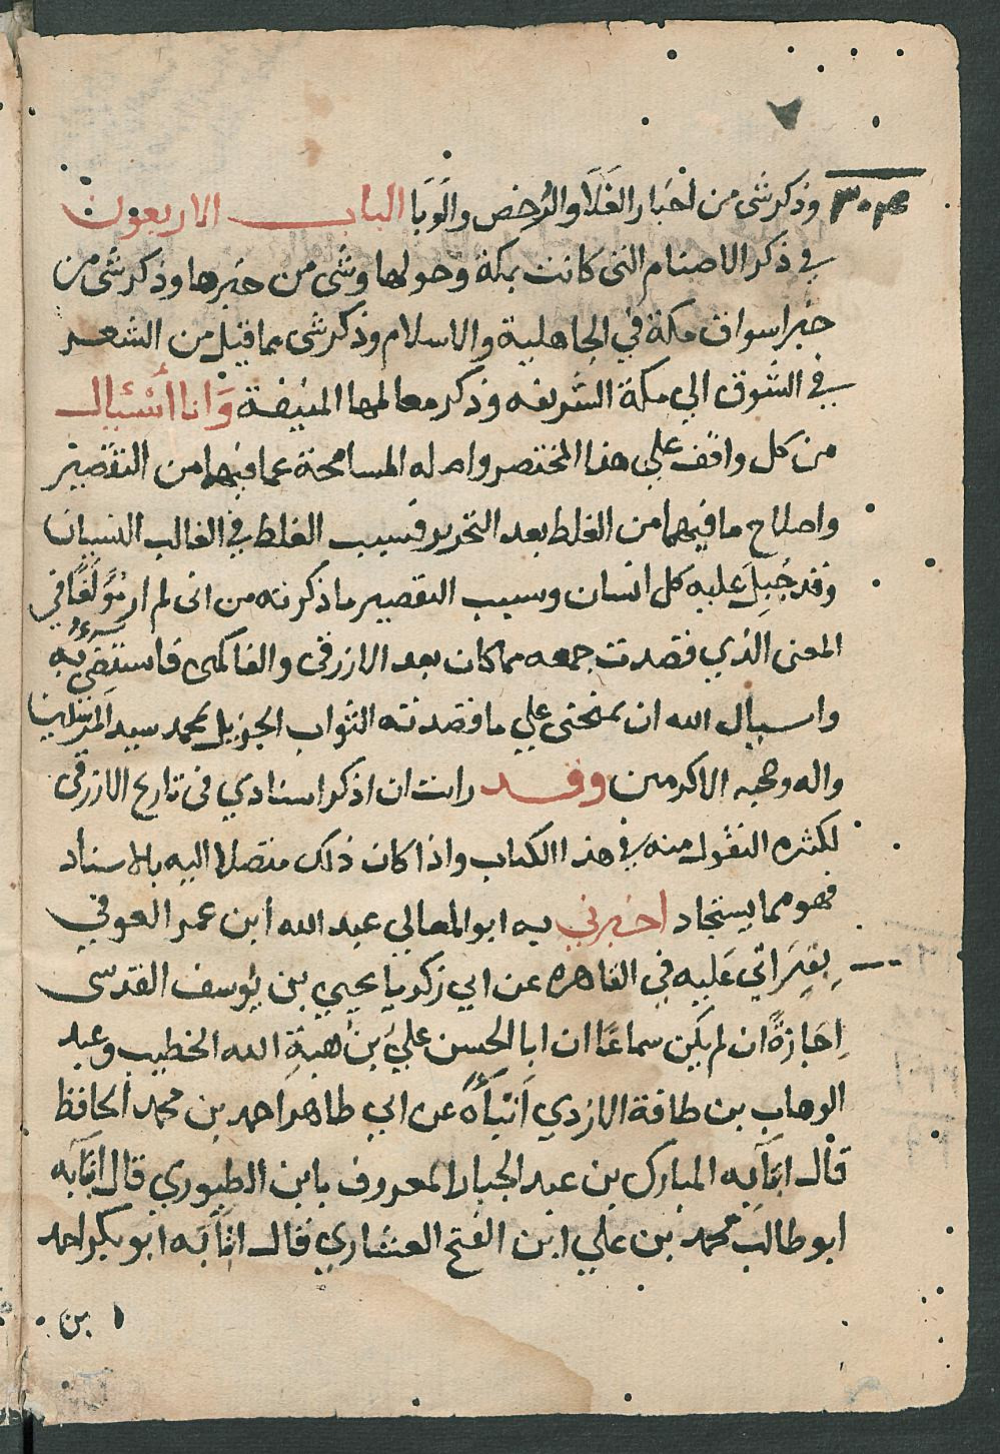 وذكر شى من اخبار الغَلَا والرُخص والوَبا الباب الاربعون
في ذكر الاصنام التى كانت بمكة وحولها وشى من خبرها وذكر شى من
خبر اسواق مكة في الجاهلية والاسلام وذكر شى مما قيل من الشعر
في الشوق الي مكة الشريفه وذكر معالمها المنيفة وَانا أسئال
من كل واقف علي هذا المختصر واصله المسامحة عما فيهما من التقصير
واصلاح ما فيهما من الغلط بعد التحرير فسبب الغلط في الغالب النسيان
وقد جُبِلَ عليه كل انسان وسبب التقصير ما ذكرته من انى لم ار مُؤلَفًا في
المعنى الذي قصدت جمعه مما كان بعد الازرقى والفاكهى فاستضىُ به
واسيال الله ان يمنحنى علي ما قصدته الثواب الجزيل بمحمد سيد المرسلين
واله وصحبه الاكرمين وقد رايت ان اذكر اسنادي فى تاريخ الازرقى
لكثره النقول منه في هذا الكتاب واذا كان ذلك متصلا اليه بالاسناد
فهو مما يستجاد اخبرني به ابو المعالي عبد الله ابن عمر الصوفي
بِقِرَاتي عَليه في القاهره عن ابي زكريا يحيي بن يُوسف القدسى
اِجَازةً ان لم يكن سماعًا ان ابا الحسن علي بن هبة الله الخطيب وعبد
الوهاب بن ظافة الازدي انبأهُ عن ابي طاهر احمد بن محمد الحافظ
قال انبَأَبه المبارك بن عبد الجبار المعروف بابن الطيوري قال انبابه
ابو طالب محمد بن علي ابن الفتح العشاري قال انبابه ابو بكر احمد
بن